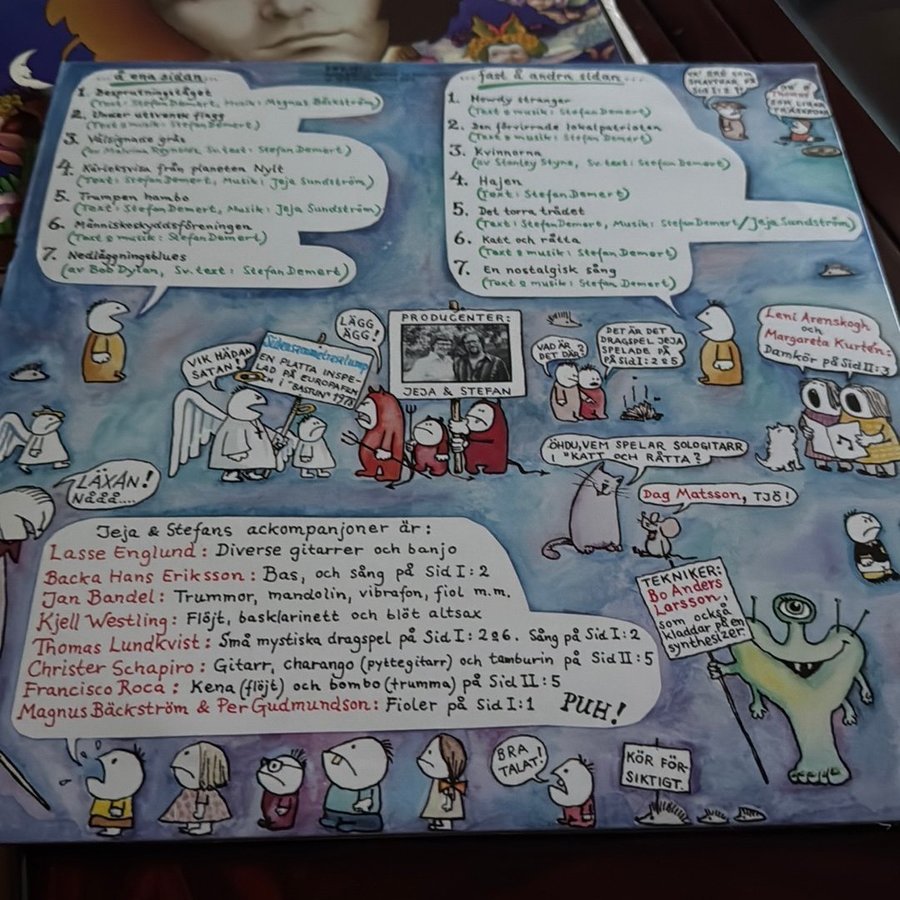 ... å ena sidan ...
1. Besprutningståget
(Text: Stefan Demert, Musik: Magnus Bäckström)
2. Under utsvensk flagg
(Text & musik: Stefan Demert)
3. Välsignade gräs
(av Malvina Reynolds, Sv. text: Stefan Demert)
4. Kärleksvisa från planeten Nylt
(Text: Stefan Demert, Musik: Jeja Sundström)
5. Trampen hambo
(Text: Stefan Demert, Musik: Jeja Sundström)
6. Människoskyddsföreningen
(Text & musik: Stefan Demert)
7. Nedläggningsblues
(av Bob Dylan, Sv. text: Stefan Demert)
... fast å andra sidan ...
1. Howdy stranger
(Text & musik: Stefan Demert)
2. Den förvirrade lokalpatrioten
(Text & musik: Stefan Demert)
3. Kvinnorna
(av Stanley Styne, Sv. text: Stefan Demert)
4. Hajen
(Text: Stefan Demert)
5. Det torra trädet
(Text: Stefan Demert, Musik: Stefan Demert/Jeja Sundström)
6. Katt och råtta
(Text & musik: Stefan Demert)
7. En nostalgisk sång
(Text & musik: Stefan Demert)
SID I: 2
SOM
VIK HÄDAN
SATAN!
EN PLATTA INSPE-
LAD PÅ EUROPAFILM
I "BASTUN" 1978
LÄGG
ÄGG!
PRODUCENTER:
JEJA & STEFAN
VAD ÄR
DET DÄR?
DET ÄR DET
DRAGSPEL JEJA
SPELADE PÅ
PÅ SID I: 2 & 5
Leni Arenskogh
och
Margareta Kurtén:
Damkör på Sid II: 3
LÄXAN!
NÄÄÄ....
ÖHDU, VEM SPELAR SOLOGITARR
I "KATT OCH RÅTTA?
Dag Matsson, TJÖ!
Jeja & Stefans ackompanjoner är:
Lasse Englund: Diverse gitarrer och banjo
Backa Hans Eriksson: Bas, och sång på Sid I: 2
Jan Bandel: Trummor, mandolin, vibrafon, fiol m.m.
Kjell Westling: Flöjt, basklarinett och blöt altsax
Thomas Lundkvist: Små mystiska dragspel på Sid I: 2&6. Sång på Sid I: 2
Christer Schapiro: Gitarr, charango (pyttegitarr) och tamburin på Sid II: 5
Francisco Roca: Kena (flöjt) och bombo (trumma) på Sid II: 5
Magnus Bäckström & Per Gudmundson: Fioler på Sid I: 1
PUH!
TEKNIKER:
Bo Anders
Larsson,
som också
kladdar på en
synthesizer.
BRA
TALAT!
KÖR FÖR-
SIKTIGT.